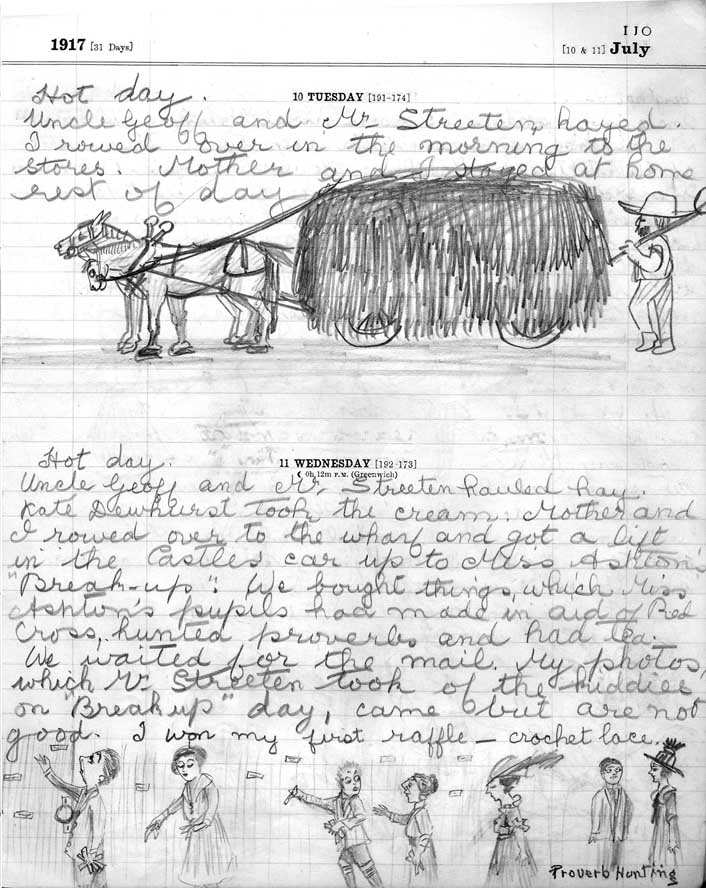 110
1917 [31 Days]
[10 & 11] July
10 TUESDAY [191-174]
Hot day.
Uncle Geoff and Mr Streeten hayed.
I rowed over in the morning to the
stores. Mother and I stayed at home
rest of day
11 WEDNESDAY [192-173]
☾ 0h.12m P.M. (Greenwich)
Hot day.
Uncle Geoff and Mr. Streeten hauled hay.
Kate Dewhurst took the cream. Mother and
I rowed over to the wharf and got a lift
in the Castles car up to Miss Ashton's
"Break-up". We bought things, which Miss
Ashton's pupils had made in aid of Red
Cross, hunted proverbs and had tea.
We waited for the mail. My photos,
which Mr Streeten took of the kiddies
on "Break up" day, came but are not
good. I won my first raffle — crochet lace.
Proverb Hunting